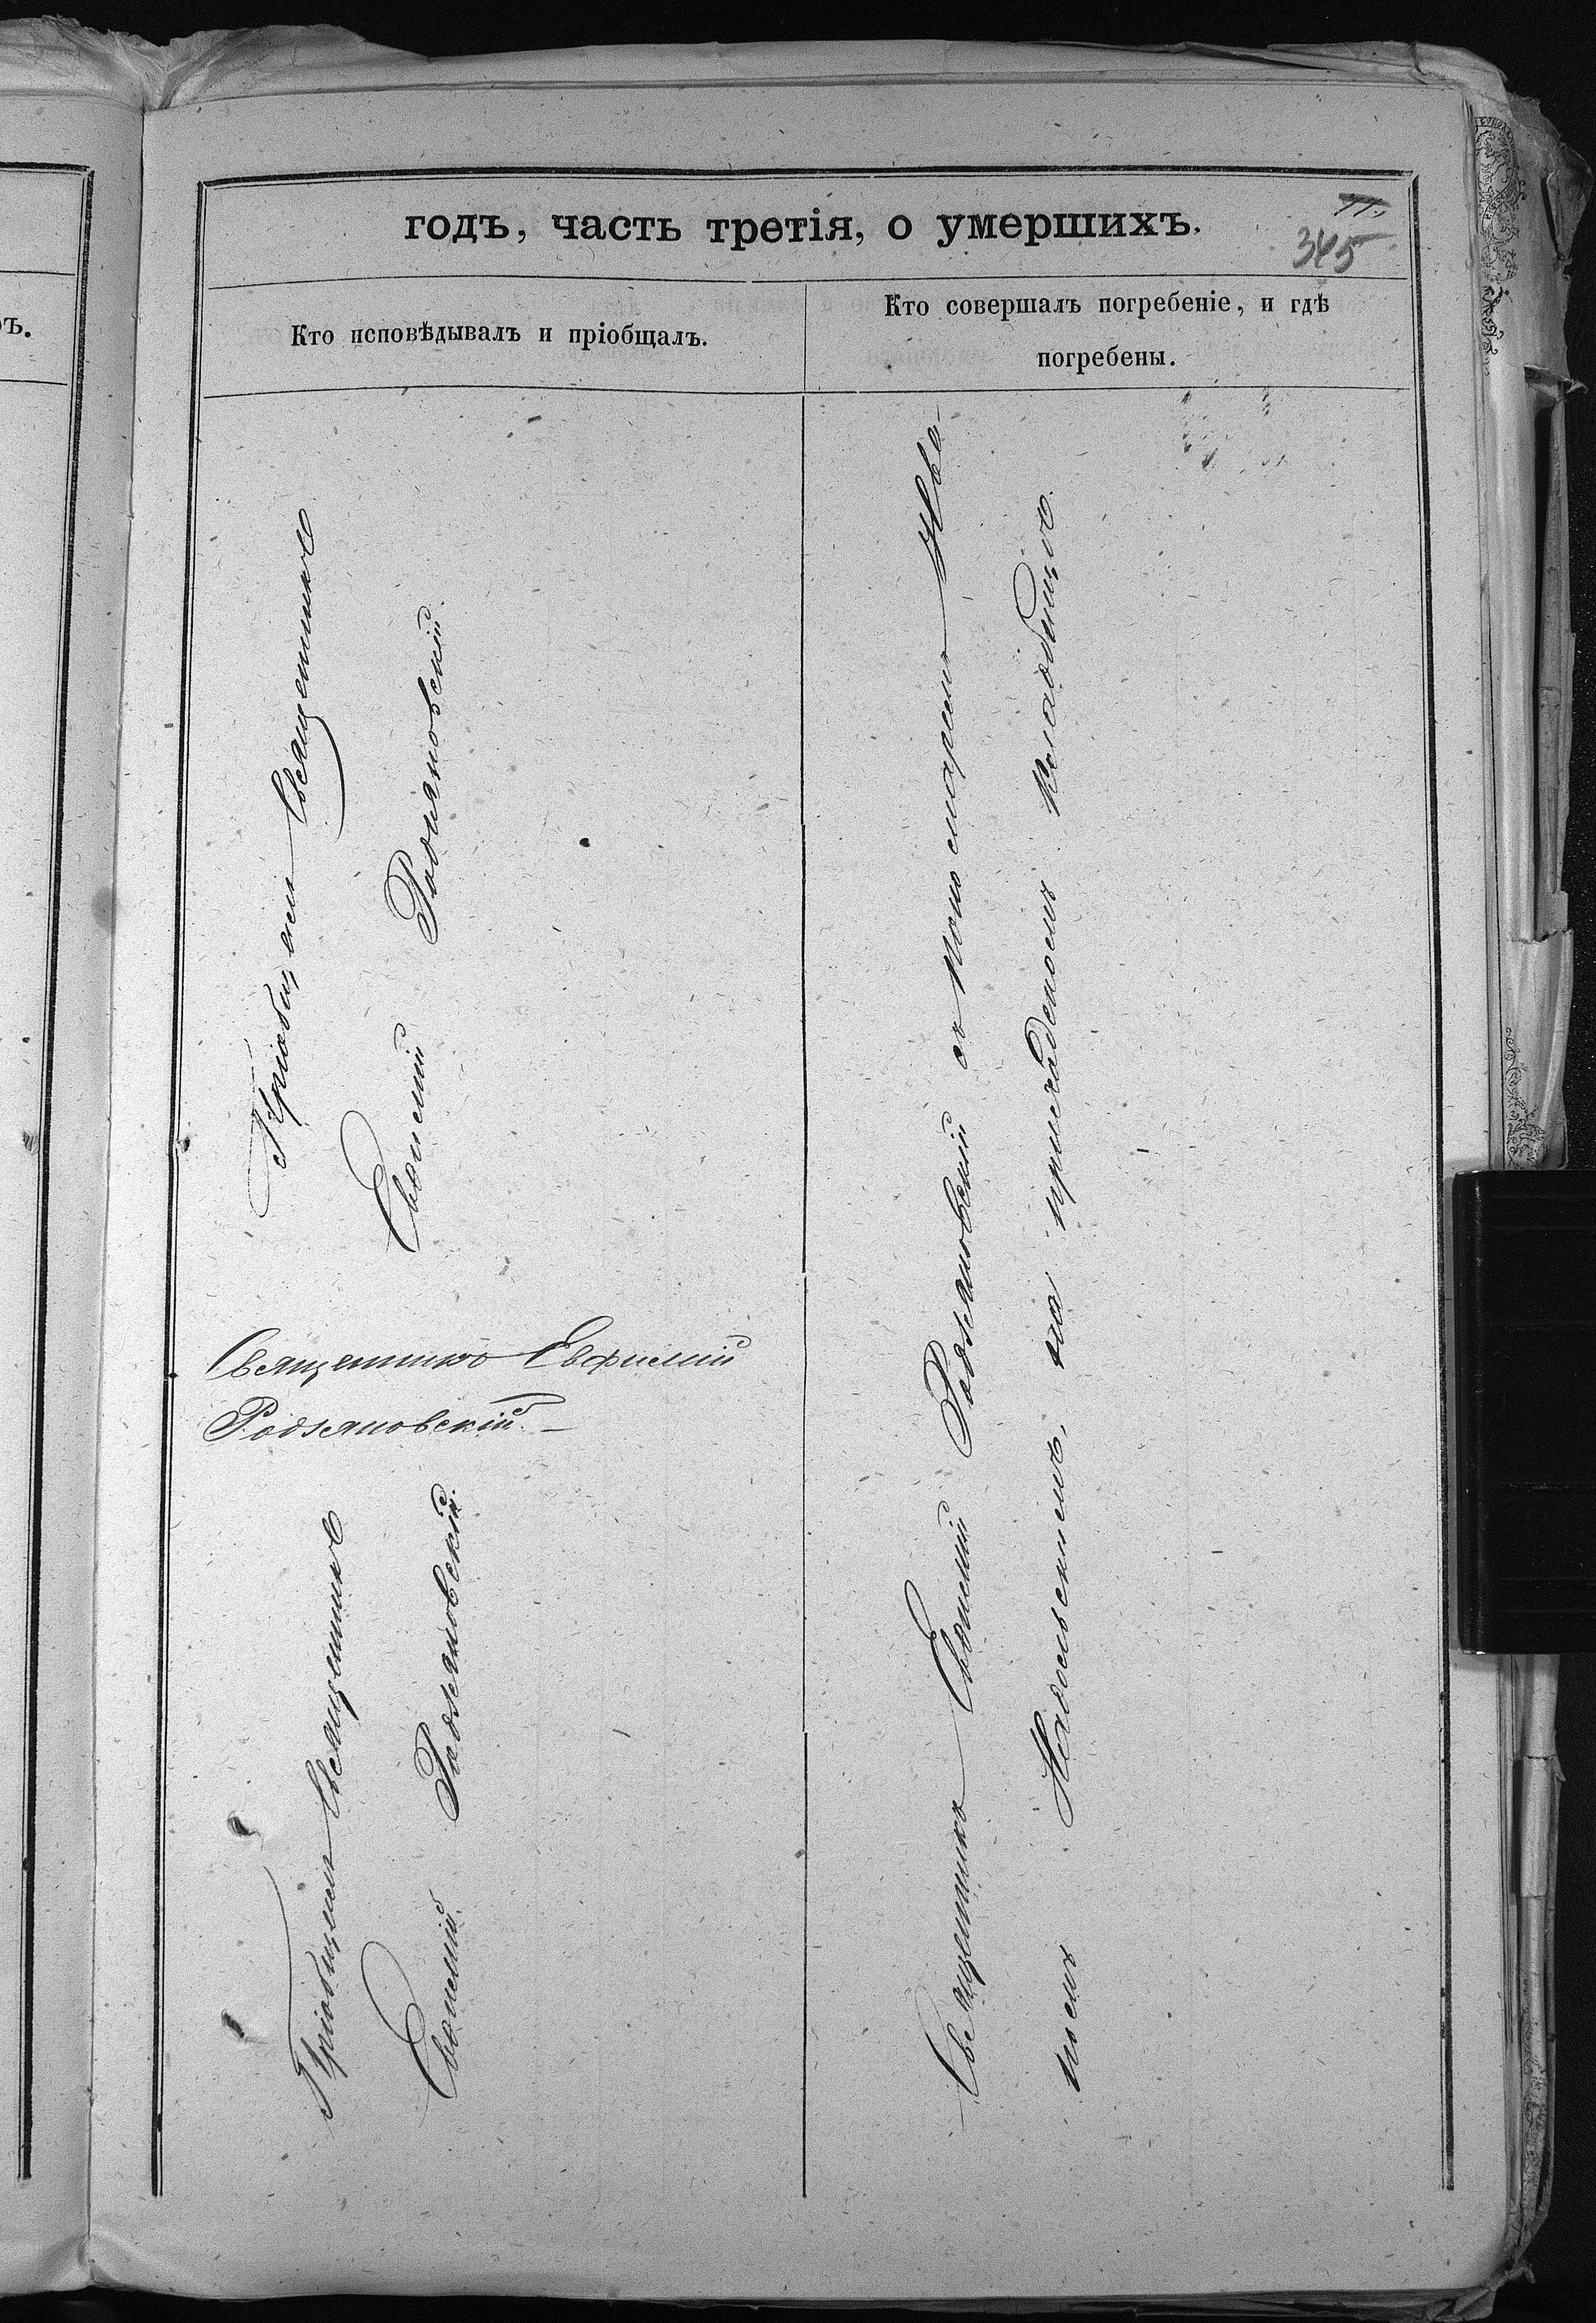 ъ.
годъ, часть третія, о умершихъ.
345
Кто исповѣдывалъ и пріобщалъ.
Кто совершалъ погребеніе, и гдѣ
погребены.
Пріобщалъ Священникъ
Евфимій Родзяновскій.
Священникъ Евфимій
Родзяновскій.
Пріобщалъ Священникъ
Евфимій Родзяновскій.
Священникъ Евфимій Родзяновскій съ Пономаремъ Ива-
номъ на приходскомъ кладбищѣ.